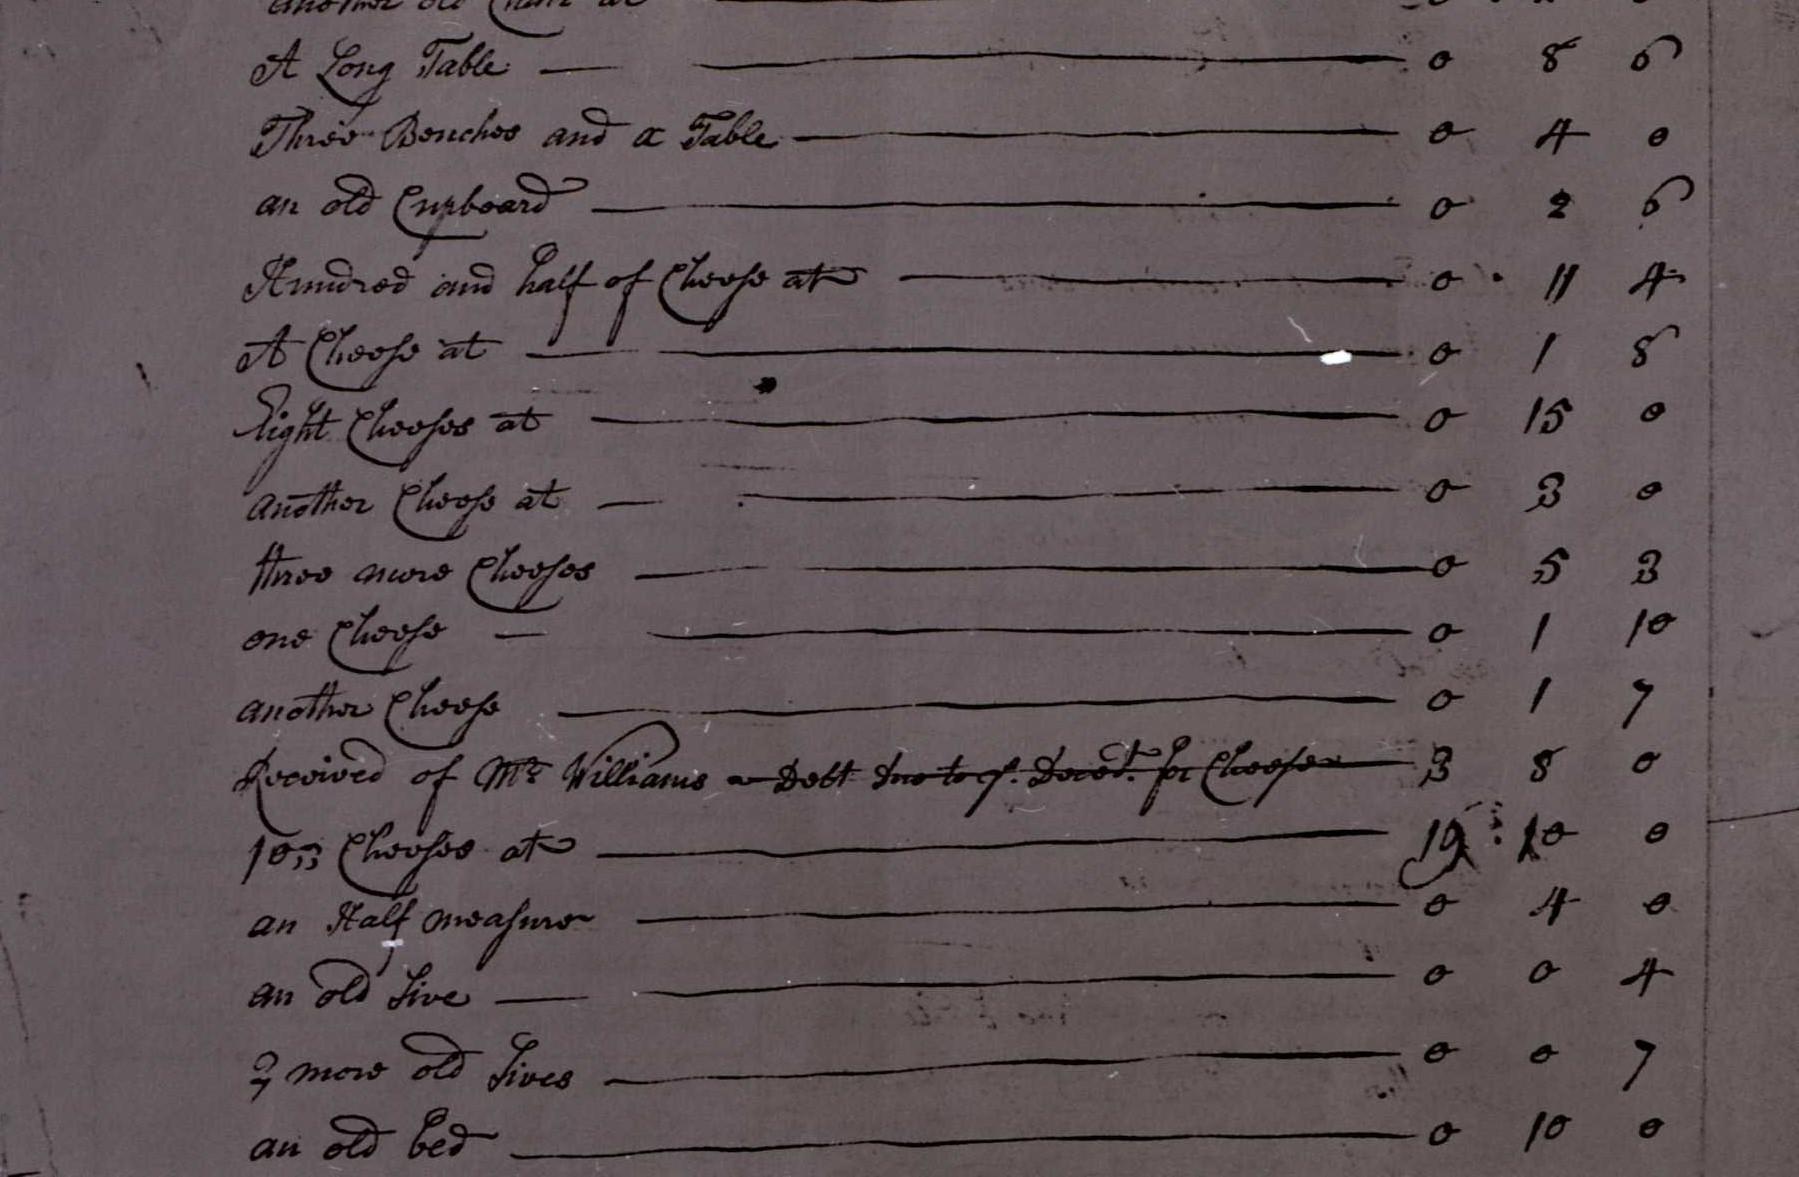 another old Chair at 0
A Long Table 0 8 6
Three Benches and a Table 0 4 0
an old Cupboard 0 2 6
Hundred and half of Cheese at 0 11 4
A Cheese at 0 1 8
Eight Cheeses at 0 15 0
another Cheese at 0 3 0
three more Cheeses 0 5 3
one Cheese 0 1 10
another Cheese 0 1 7
Received of Mr Williams a Debt due to ye. Deced. for Cheese 3 8 0
103 Cheeses at 19 : 10 0
an Half measure 0 4 0
an old Sive 0 0 4
2 more old Sives 0 0 7
an old bed 0 10 0